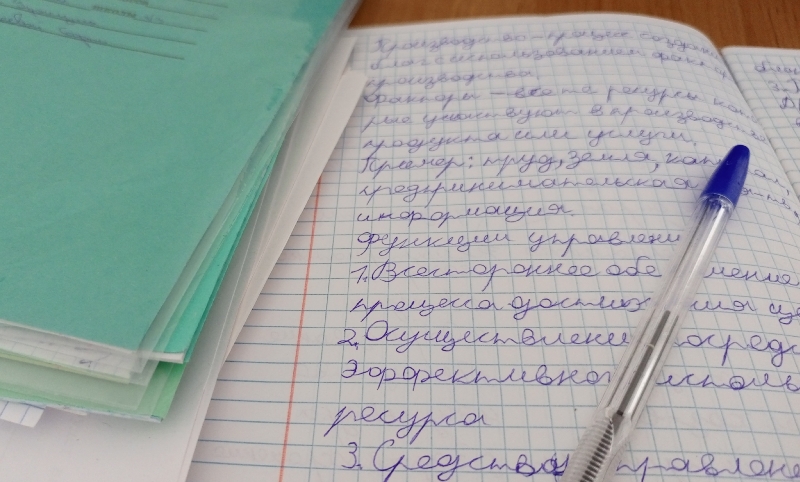 Производство – процес создани
благ с использованием фактор
производства.
Факторы – все те ресурсы кото
рые участвуют в производстве
продукта или услуги.
Пример: труд, земля, капитал,
предпринимательская
информация.
Функции управлени
1. Всестороннее обе мение
процеса достиж ния це
2. Осуществлени посредс
эффективного исполь
ресурса
3. Средство правлени